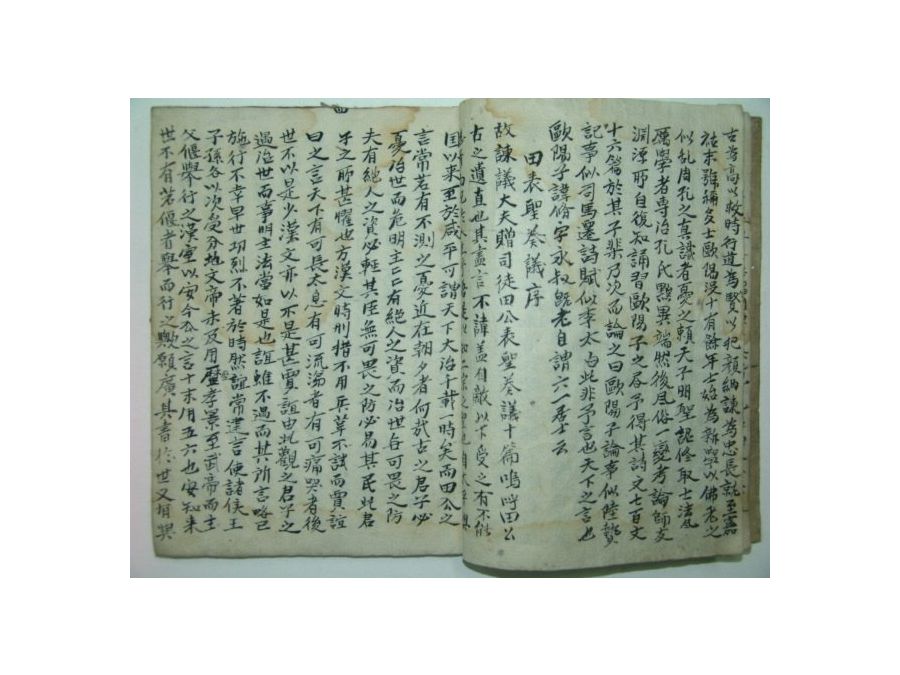 古為高以救時行道為賢以犯顏納諫為忠長就至嘉
祐末號稱多士歐陽沒十有餘年士始為新學以佛老之
似乱周孔之真識者憂之賴天子明聖詔修取士法風
厲學者専治孔氏黜異端然後風俗一變考論師友
淵源所自復知誦習歐陽子之書予得其詩文七百六
十六篇於其子棐乃次而論之曰歐陽子論事似陸贄
記事似司馬遷詩賦似李太白此非予言也天下之言也
歐陽子諱脩字永叔旣老自謂六一居士云
田表聖奏議序
故諫議大夫贈司徒田公表聖奏議十篇嗚呼田公
古之遺直也其盡言不諱盖自敵以下受之有不能
國以来至於咸平可謂天下大治千載一時矣而田公之
言常若有不測之憂近在朝夕者何哉古之君子必
憂治世而危明主〻〻有絕人之資而治世無可畏之防
夫有絕人之資必輕其臣無可畏之防必易其民此君
子之所甚懼也方漢文時刑措不用兵革不試而賈誼
曰之言天下有可長太息有可流涕者有可痛哭者後
世不以是少漢文亦以不是甚賈誼由此觀之君子之
遇治世而事明主法當如是也誼雖不遇而其所言略已
施行不幸早世功烈不著於時然誼常建言使諸侯王
子孫各以次受分地文帝未及用歷孝景至武帝而主
父偃舉行之漢室以安今公之言十未用五六也安知来
世不有若偃者舉而行之歟願廣其書於世又有與